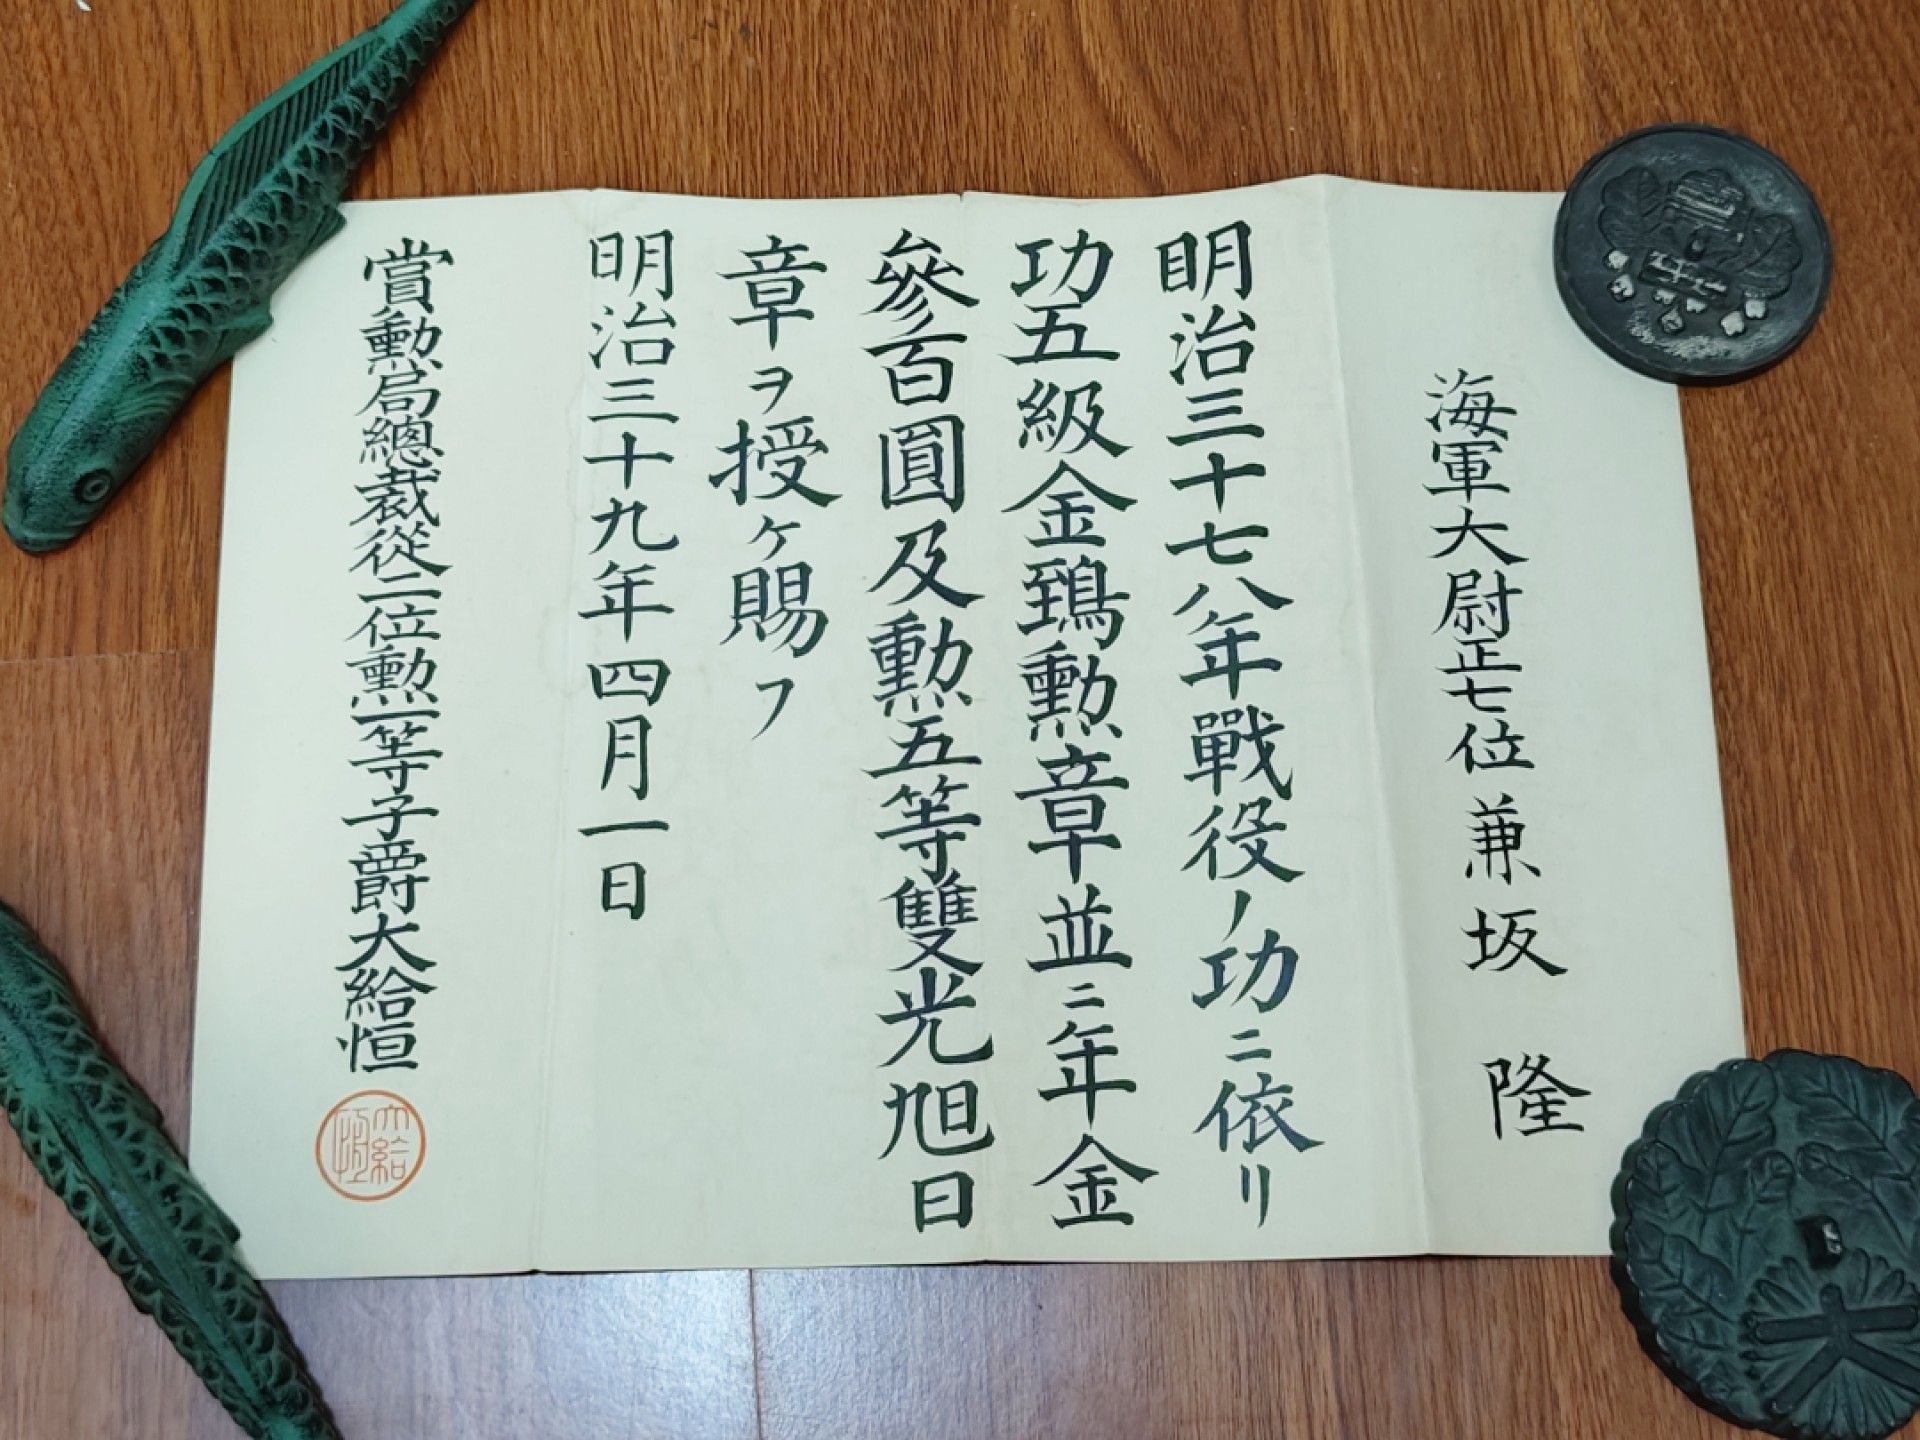 海軍大尉正七位兼坂隆
明治三十七八年戰役ノ功ニ依リ
功五級金鵄勲章並ニ年金
參百圓及勲五等雙光旭日
章ヲ授ケ賜フ
明治三十九年四月一日
賞勲局總裁從二位勲一等子爵大給恒
大給
恒